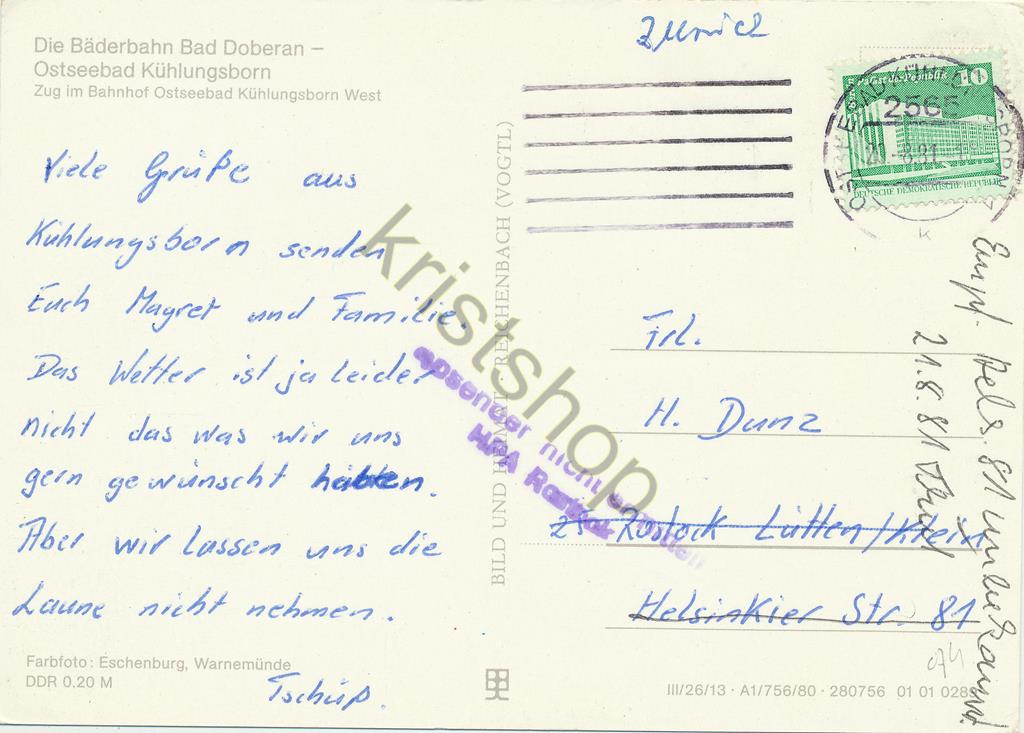 Zurück
Die Bäderbahn Bad Doberan –
Ostseebad Kühlungsborn
Zug im Bahnhof Ostseebad Kühlungsborn West
Viele Grüße aus
Kühlungsborn senden
Euch Magret und Familie.
Das Wetter ist ja leider
nicht das was wir uns
gern gewünscht hätten.
Aber wir lassen uns die
Laune nicht nehmen.
Tschüß.
Farbfoto: Eschenburg, Warnemünde
DDR 0.20 M
BILD UND HEIMAT REICHENBACH (VOGTL)
kristshop
absender nicht ermitteln
HPA Rostock
10
DEUTSCHE DEMOKRATISCHE REPUBLIK
OSTSEEBAD KÜHLUNGSBORN
2565
-8.81
k
Frl.
H. Dunz
25 Rostock Lütten/Klein
Helsinkier Str. 81
Empf. Hels. 81 unbekannt.
21.8.81
III/26/13 · A1/756/80 · 280756 01 01 0288